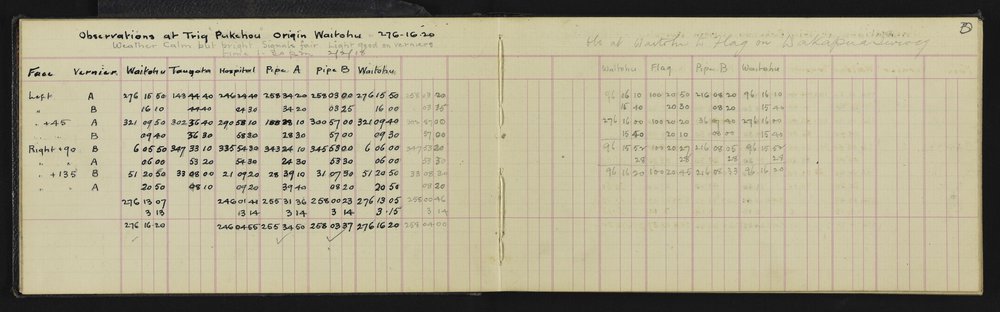 Observations at Trig Pukehou Origin Waitohu - 276-16-20
Weather Calm but bright Signals fair Light good on verniers
Time 1-30 p.m. 2/2/18
Face Vernier Waitohu Taugata Hospital Pipe A Pipe B Waitohu
Left A 276 15 50 143 44 40 246 04 40 258 34 20 258 03 00 276 15 50 258 03 20
" B 16 10 44 40 04 30 34 20 03 25 16 00 03 35
" +45 A 321 09 50 302 36 40 290 58 10 28 10 300 57 00 321 09 40 302 57 00
" " B 09 40 36 30 58 10 28 30 57 00 09 30 57 00
Right +90 B 6 05 50 347 33 10 335 54 30 343 24 10 345 53 00 6 06 00 347 53 20
" " A 06 00 53 20 54 30 24 30 53 30 06 00 53 30
" +135 B 51 20 50 33 08 00 21 09 20 28 39 10 31 07 50 51 20 50 33 08 30
" " A 20 50 08 10 09 20 39 40 08 20 20 50 08 20
276 13 07 246 01 41 255 31 36 258 00 23 276 13 05 258 00 46
3 13 13 14 3 14 3 14 3 15 3 14
276 16 20 246 04 55 255 34 50 258 03 37 276 16 20 258 04 00
3
Obs at Waitohu to Flag on
Waitohu Flag Pipe B Waitohu
96 16 10 100 20 50 216 08 20 96 16 10
15 40 20 30 08 20 15 40
276 16 00 100 20 20 36 40 276 16 00
15 40 20 10 08 00 15 40
96 15 52 100 20 27 216 08 05 96 15 52
28 28 28 28
96 16 20 100 20 45 216 08 33 96 16 20